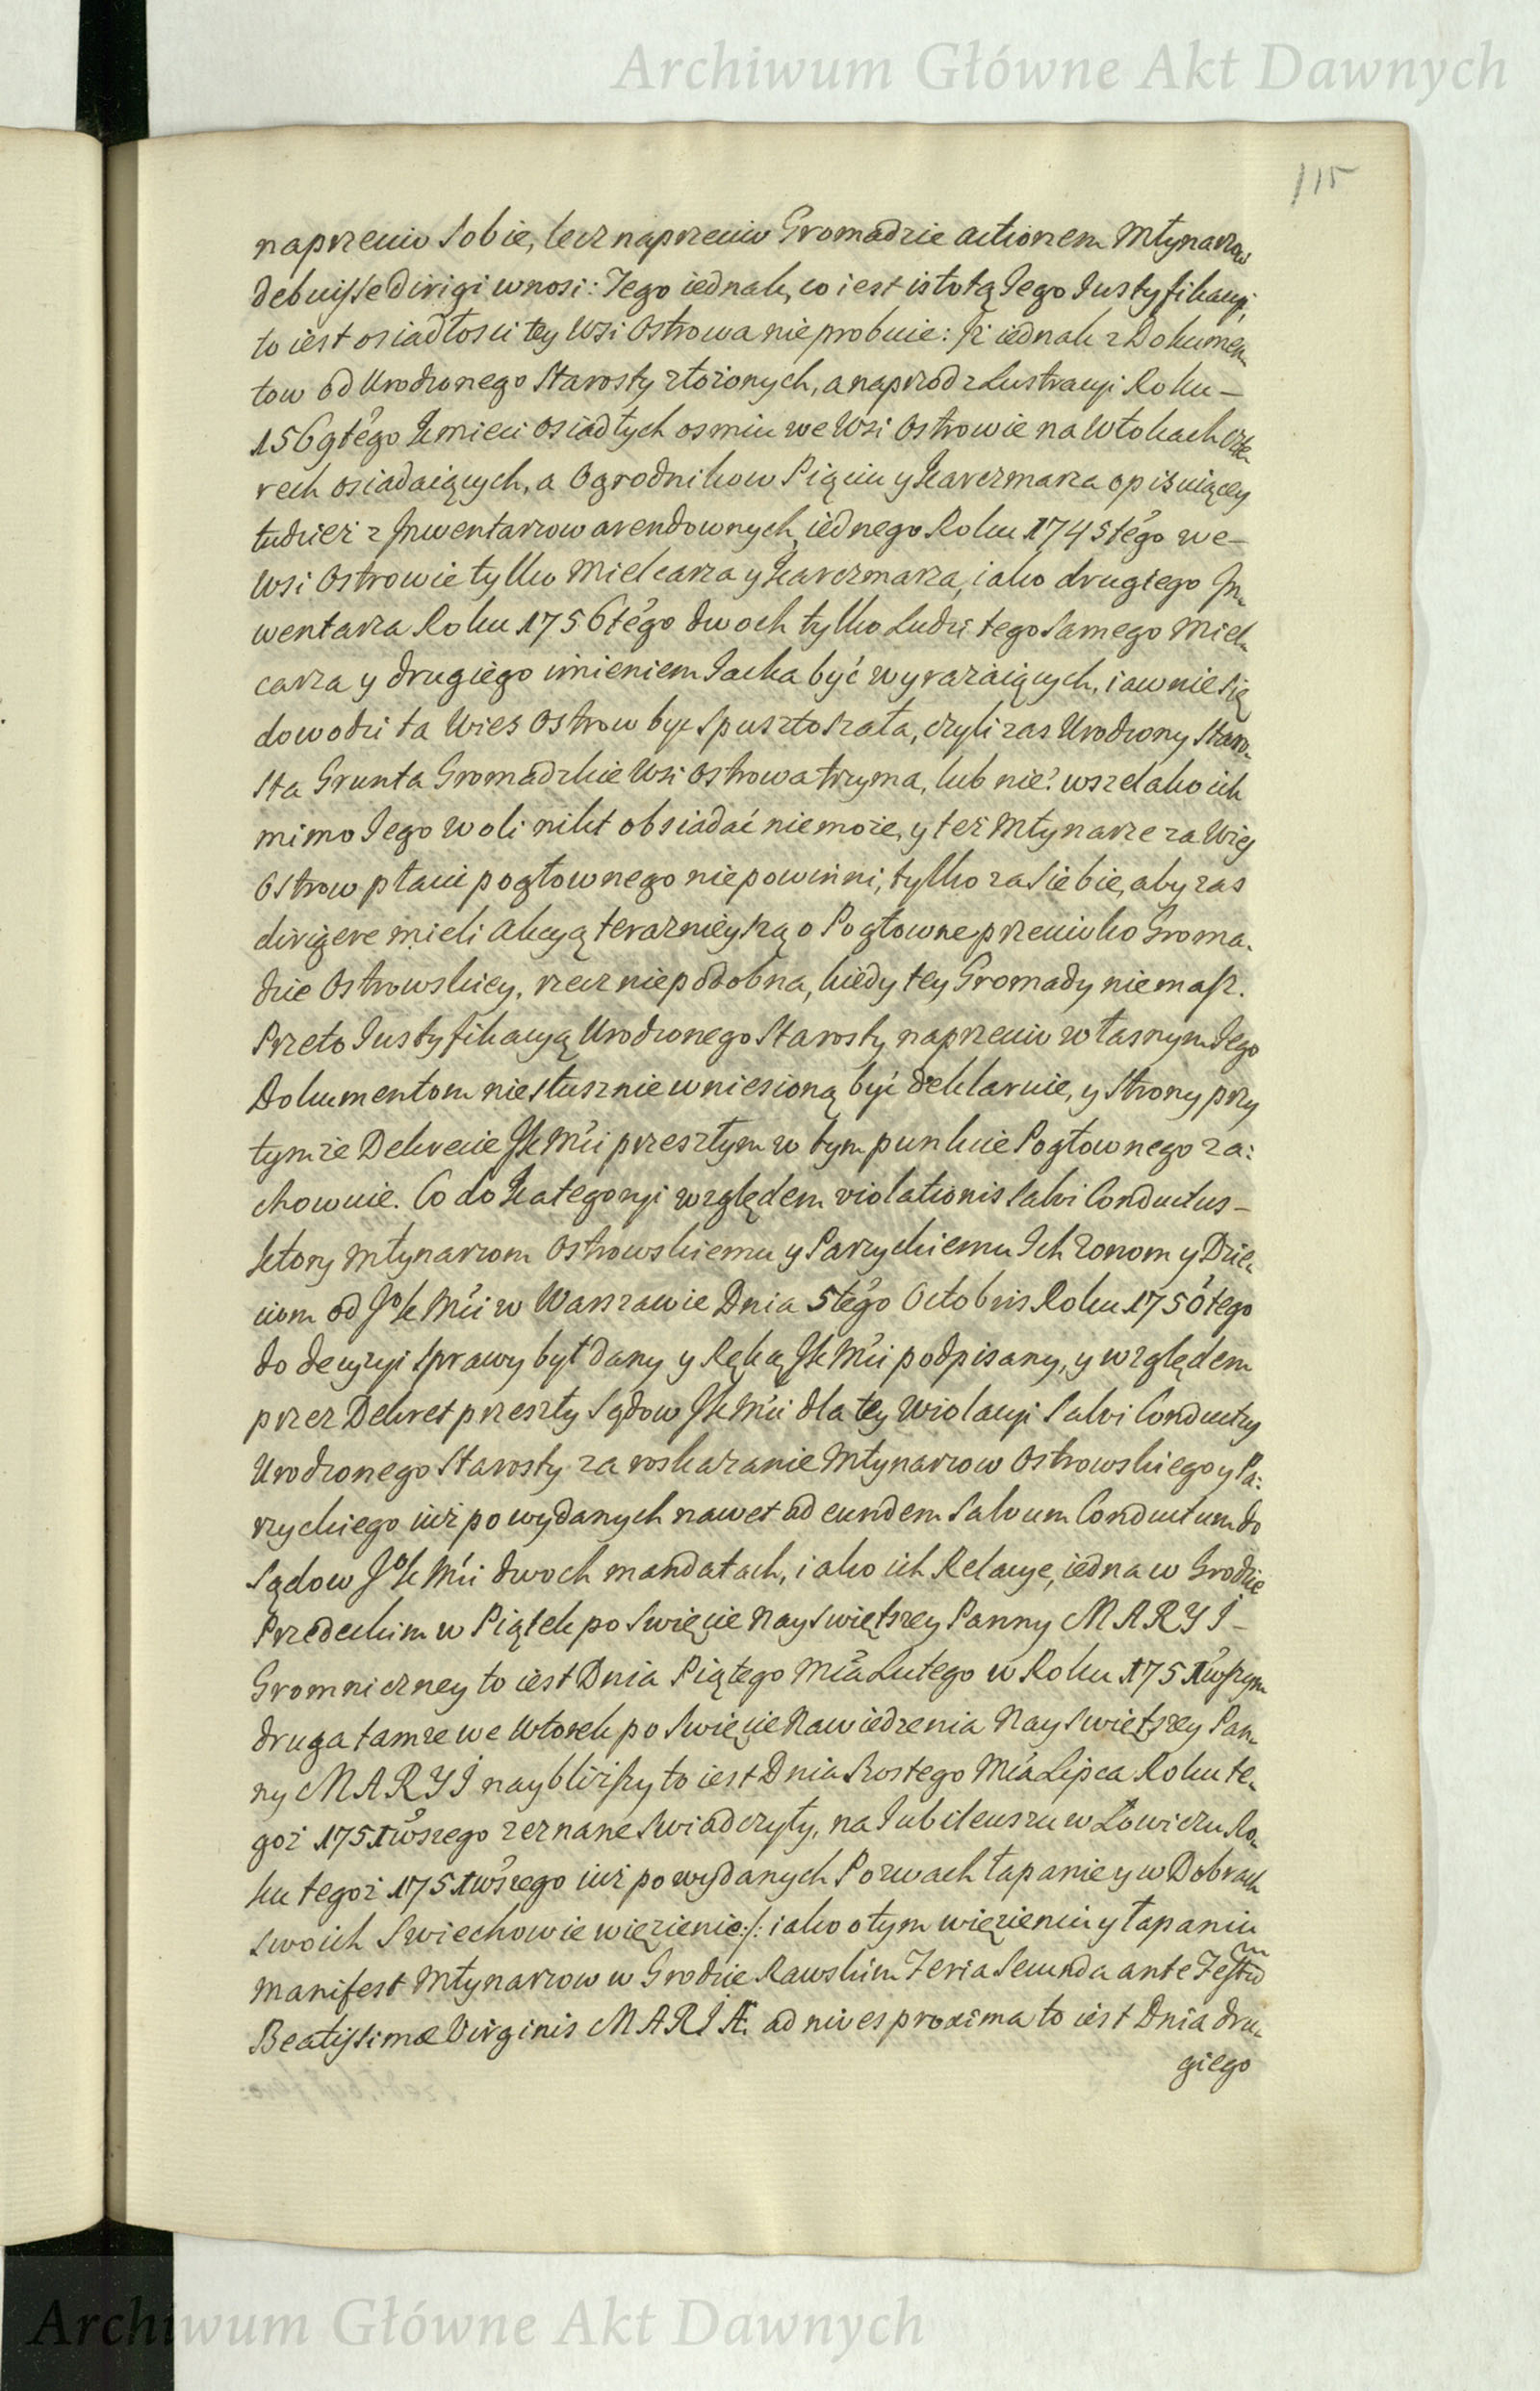 Archiwum Główne Akt Dawnych
115
naprzeciw Sobie, lecz naprzeciw Gromadzie actionem Młynarzow
debuisse dirigi wnosi: Tego iednak, co iest istotą Jego Justyfikacyi,
to iest osiadłosci tey Wsi Ostrowa nie probuie: Iż iednak z Dokumen„
tow od Urodzonego Starosty złożonych, a naprzod z Lustracyi Roku –
1569tégo Kmieci osiadłych osmiu we Wsi Ostrowie na Włokach czte„
rech osiadaiących, a Ogrodnikow Pięciu y Karczmarza opisuiącey
tudzież z Jnwentarzow arendownych, iednego Roku 1745tégo we –
Wsi Ostrowie tylko Mielcarza y Karczmarza, iako drugiego Jn„
wentarza Roku 1756tégo dwoch tylko Ludzi tego Samego Miel„
carza y drugiego imieniem Jacka być wyrażaiących, iawnie się
dowodzi ta Wies Ostrow byc Spusztoszała, czyli zas Urodzony Staro„
sta Grunta Gromadzkie Wsi Ostrowa trzyma, lub nie? wszelako ich
mimo Jego woli nikt obsiadać nie może, y też Młynarze za Wieś
Ostrow płacic pogłownego nie powinni, tylko za Siebie, aby zas
dirigere mieli Akcyą terazniejszą o Pogłowne przeciwko Groma„
dzie Ostrowskiey, rzecz niepodobna, kiedy tey Gromady nie masz.
Przeto Justyfikacyą Urodzonego Starosty naprzeciw własnym Jego
Dokumentom niesłusznie wniesioną być deklaruie, y Strony przy
tymże Dekrecie JKMći przeszłym w tym punkcie Pogłownego za:
chowuie. Co do Kategoryi względem violationis Salvi Conductus –
ktory Młynarzom Ostrowskiemu y Parzyckiemu Ich Zonom y Dzie„
ciom od JKMći w Warszawie Dnia 5tégo Octobris Roku 1750tego
do decyzyi sprawy był dany y Ręką JKMći podpisany, y względem
przez Dekret przeszły Sądow JKMći dla tey Wiolacyi Salvi Conductus
Urodzonego Starosty za roskazanie Młynarzow Ostrowskiego y Pa:
rzyckiego iuż po wydanych nawet ad eundem Salvum Conductum do
Sądow JKMći dwoch mandatach, iako ich Relacye, iedna w Grodzie
Przedeckim w Piątek po Swięcie Nayswiętszey Panny MARYI –
Gromniczney to iest Dnia Piątego Mća Lutego w Roku 1751wszym
druga tamże we Wtorek po Swięcie Nawiedzenia Nayswiętszey Pan„
ny MARYI naybliższy to iest Dnia Szostego Mća Lipca Roku te„
goż 1751wszego zeznane Swiadczyły, na Jubileuszu w Łowiczu Ro„
ku tegoż 1751wszego iuż po wydanych Pozwach łapanie y w Dobrach
Swoich Swiechowie więzienie :/: iako o tym więzieniu y łapaniu
Manifest Młynarzow w Grodzie Rawskim Feria Secunda ante Festum
Beatissimæ Virginis MARIÆ ad nives proxima to iest Dnia dru„
giego
Archiwum Główne Akt Dawnych